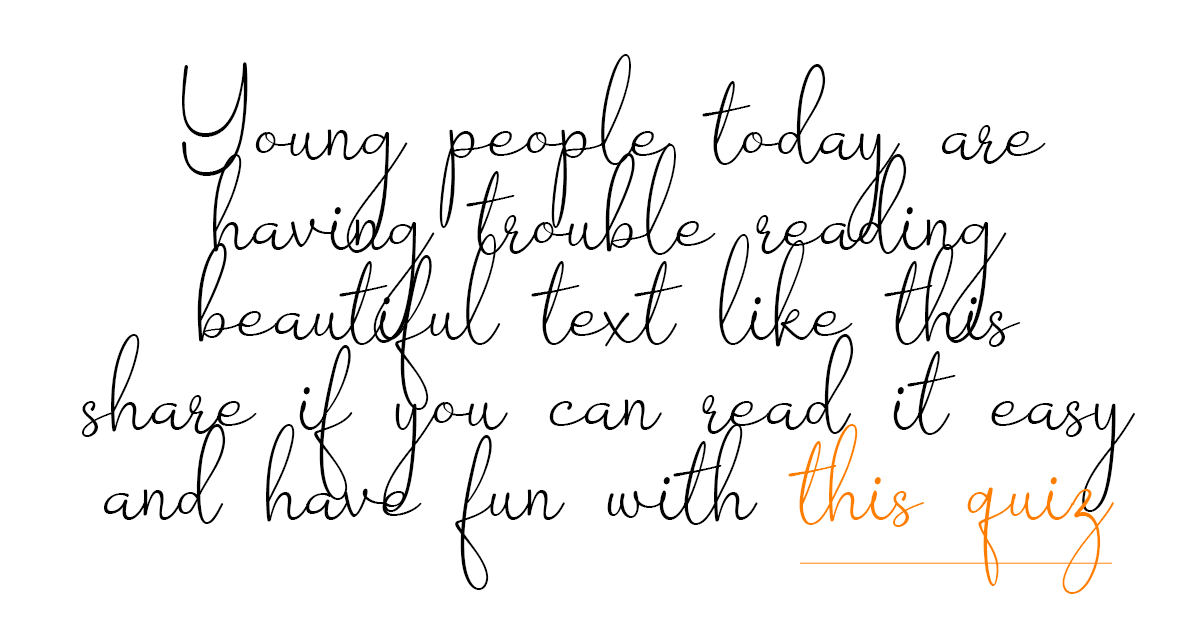 Young people today are
having trouble reading
beautiful text like this
share if you can read it easy
and have fun with this quiz